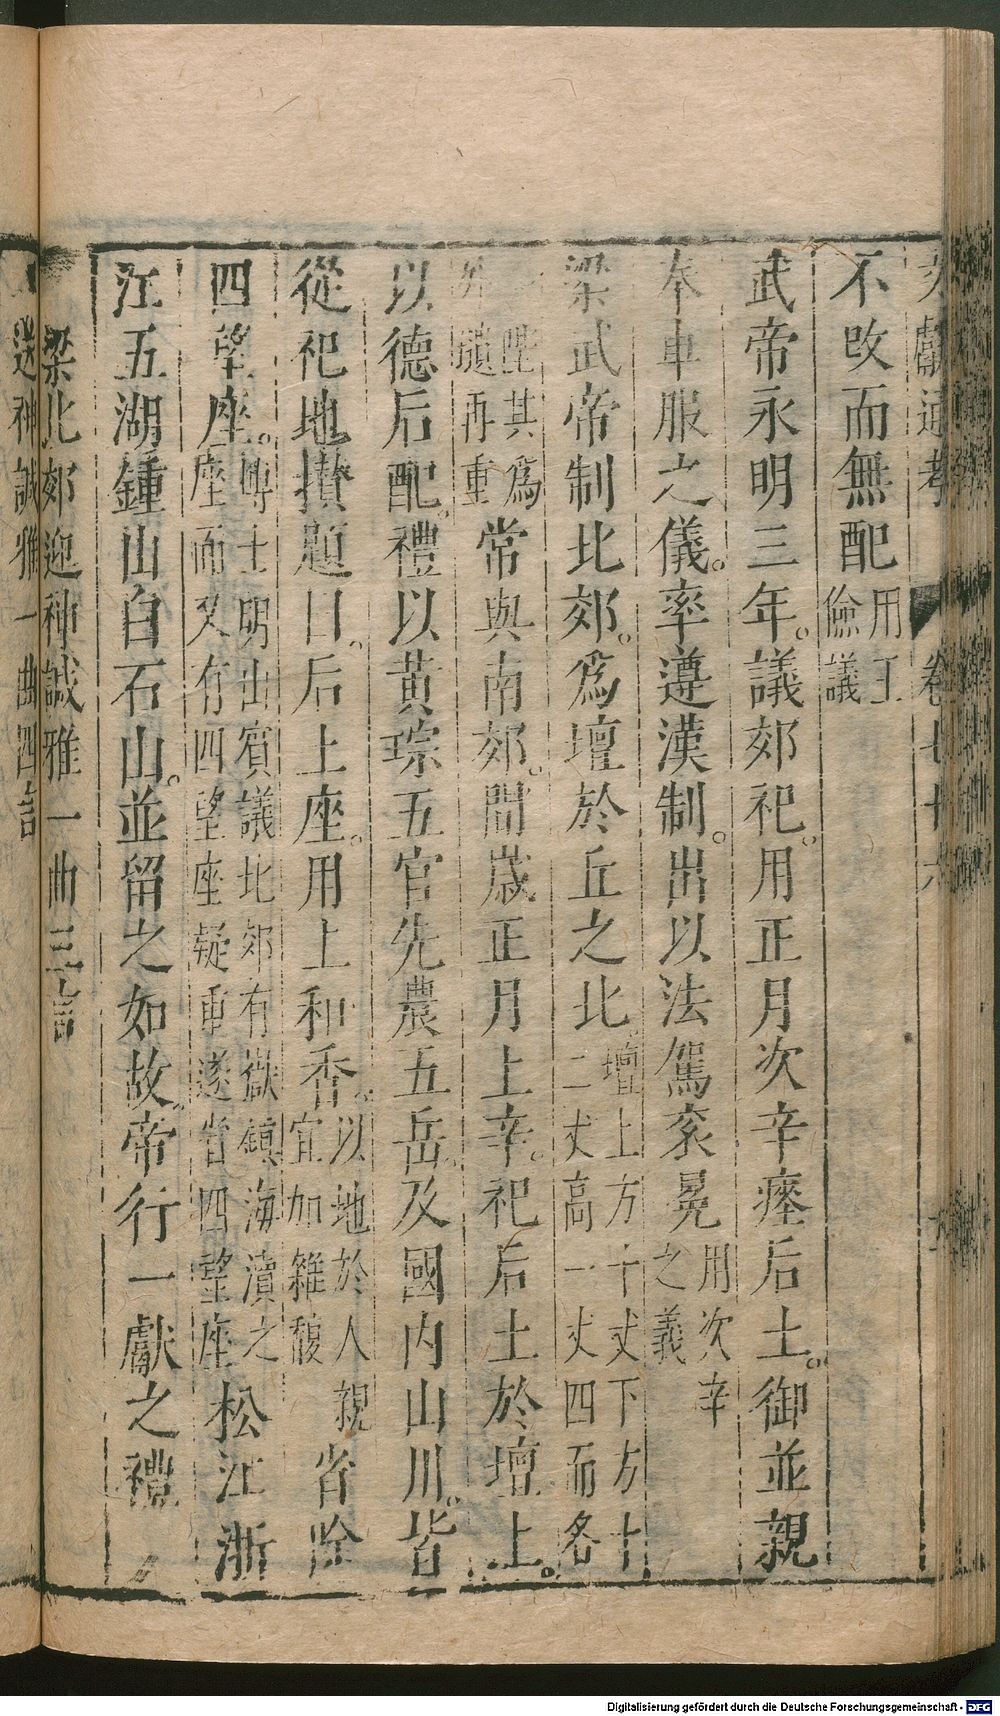 文獻通考 卷七十六
不改而無配用王儉議
武帝永明三年。議郊祀。用正月次辛瘞后土。御並親
奉車服之儀。率遵漢制。出以法駕衮冕用次辛之義
梁武帝制北郊。爲壇於丘之北。壇上方十丈下方十二丈高一丈四面各
一陛其爲外壝再重常與南郊。間歲正月上辛。祀后土於壇上。
以德后配。禮以黃琮五官先農五岳。及國内山川。皆
從祀地攢題曰。后土座。用上和香。以地於人親宜加雜馥省除
四望座。博士明山賓議北郊有嶽鎮海瀆之座而又有四望座疑重遂省四望座松江浙
江五湖鍾山白石山。並留之如故。帝行一獻之禮
梁北郊迎神諴雅一曲三言
送神諴雅一曲四言
Digitalisierung gefördert durch die Deutsche Forschungsgemeinschaft - DFG